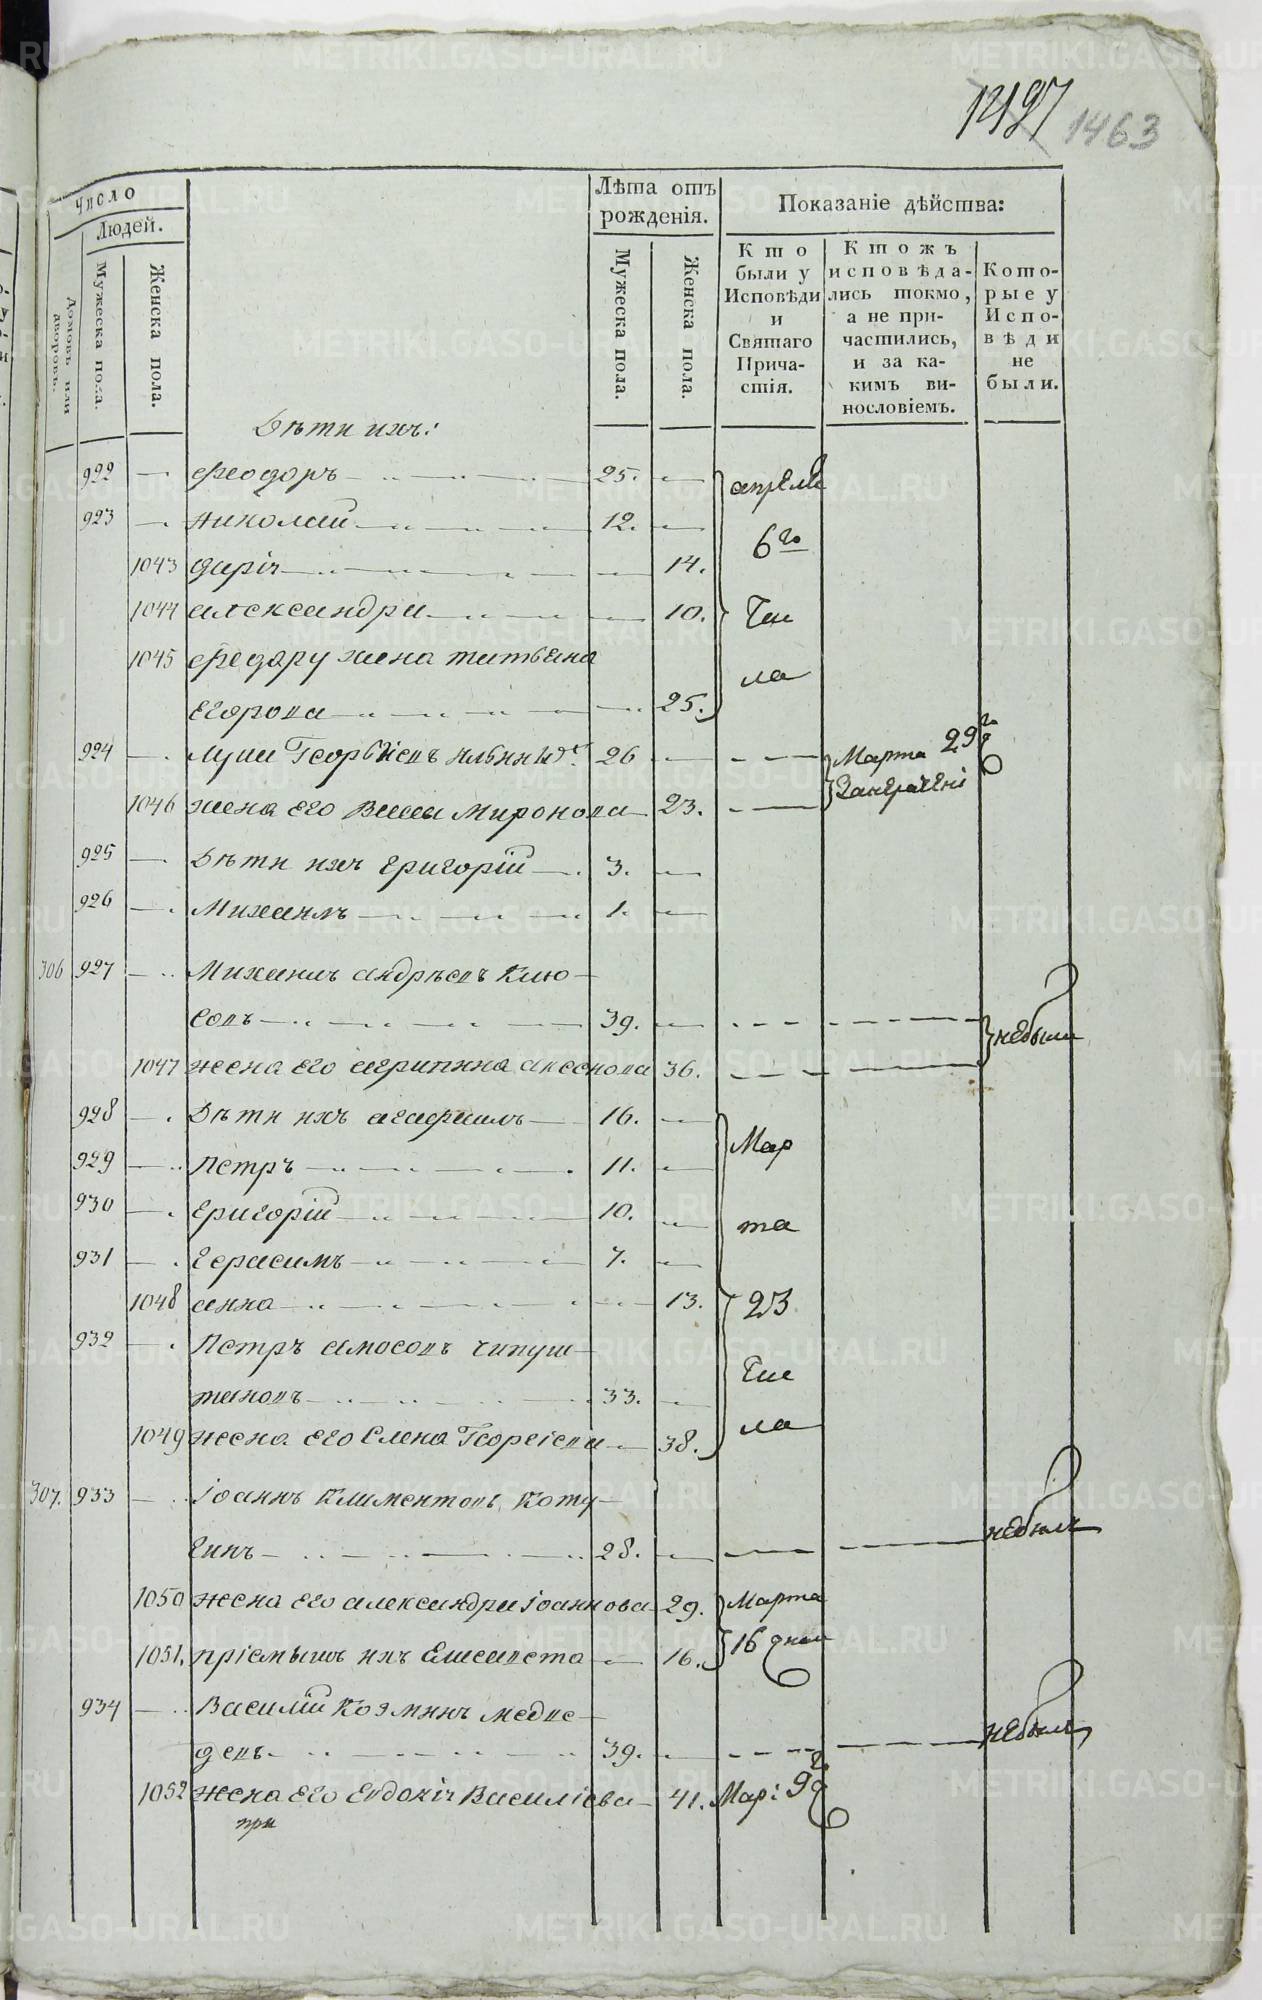 1427 1463
Число
Людей.
Домовъ или дворовъ.
Мужеска пола.
Женска пола.
Лѣта отъ рожденія.
Мужеска пола.
Женска пола.
Показаніе дѣйства:
Кто были у Исповѣди и Святаго Причастія.
Ктожъ исповѣдались токмо, а не причастились, и за какимъ винословіемъ.
Которые у Исповѣди не были.
Дѣти ихъ:
922 — Феодоръ 25. — апреля
923 — Николай 12. — 6го
1043 Дарія — 14.
1044 Александра — 10. Чис
1045 Федору жена Татьяна
Егорова — 25. ла
924 — Лука Георгіевъ 26 — Марта 29го
1046 жена его Васса Миронова 23. —
925 — Дѣти ихъ Григорій 3. —
926 — Михаилъ 1. —
306 927 — Михаилъ Андрѣевъ Клю-
совъ 39. — небыли
1047 жена его Агрипина 36.
928 — Дѣти ихъ 16. — Мар
929 — Петръ 11. —
930 — Григорій 10. — та
931 — Герасимъ 7. —
1048 Анна — 13. 23
932 — Петръ Амосовъ Чипуш-
тановъ 33. — Чис
1049 жена его Елена Георгіева — 38. ла
307. 933 — Іоаннъ Климентовъ Коту-
гинъ 28. — небылъ
1050 жена его Александра Іоаннова 29. Марта
1051. пріемышъ ихъ Елисавета — 16. 16 дня
934 — Василій Козминъ Медве-
девъ 39. — небылъ
1052 жена его Евдокія Василіева — 41. Мар: 9
при
METRIKI.GASO-URAL.RU